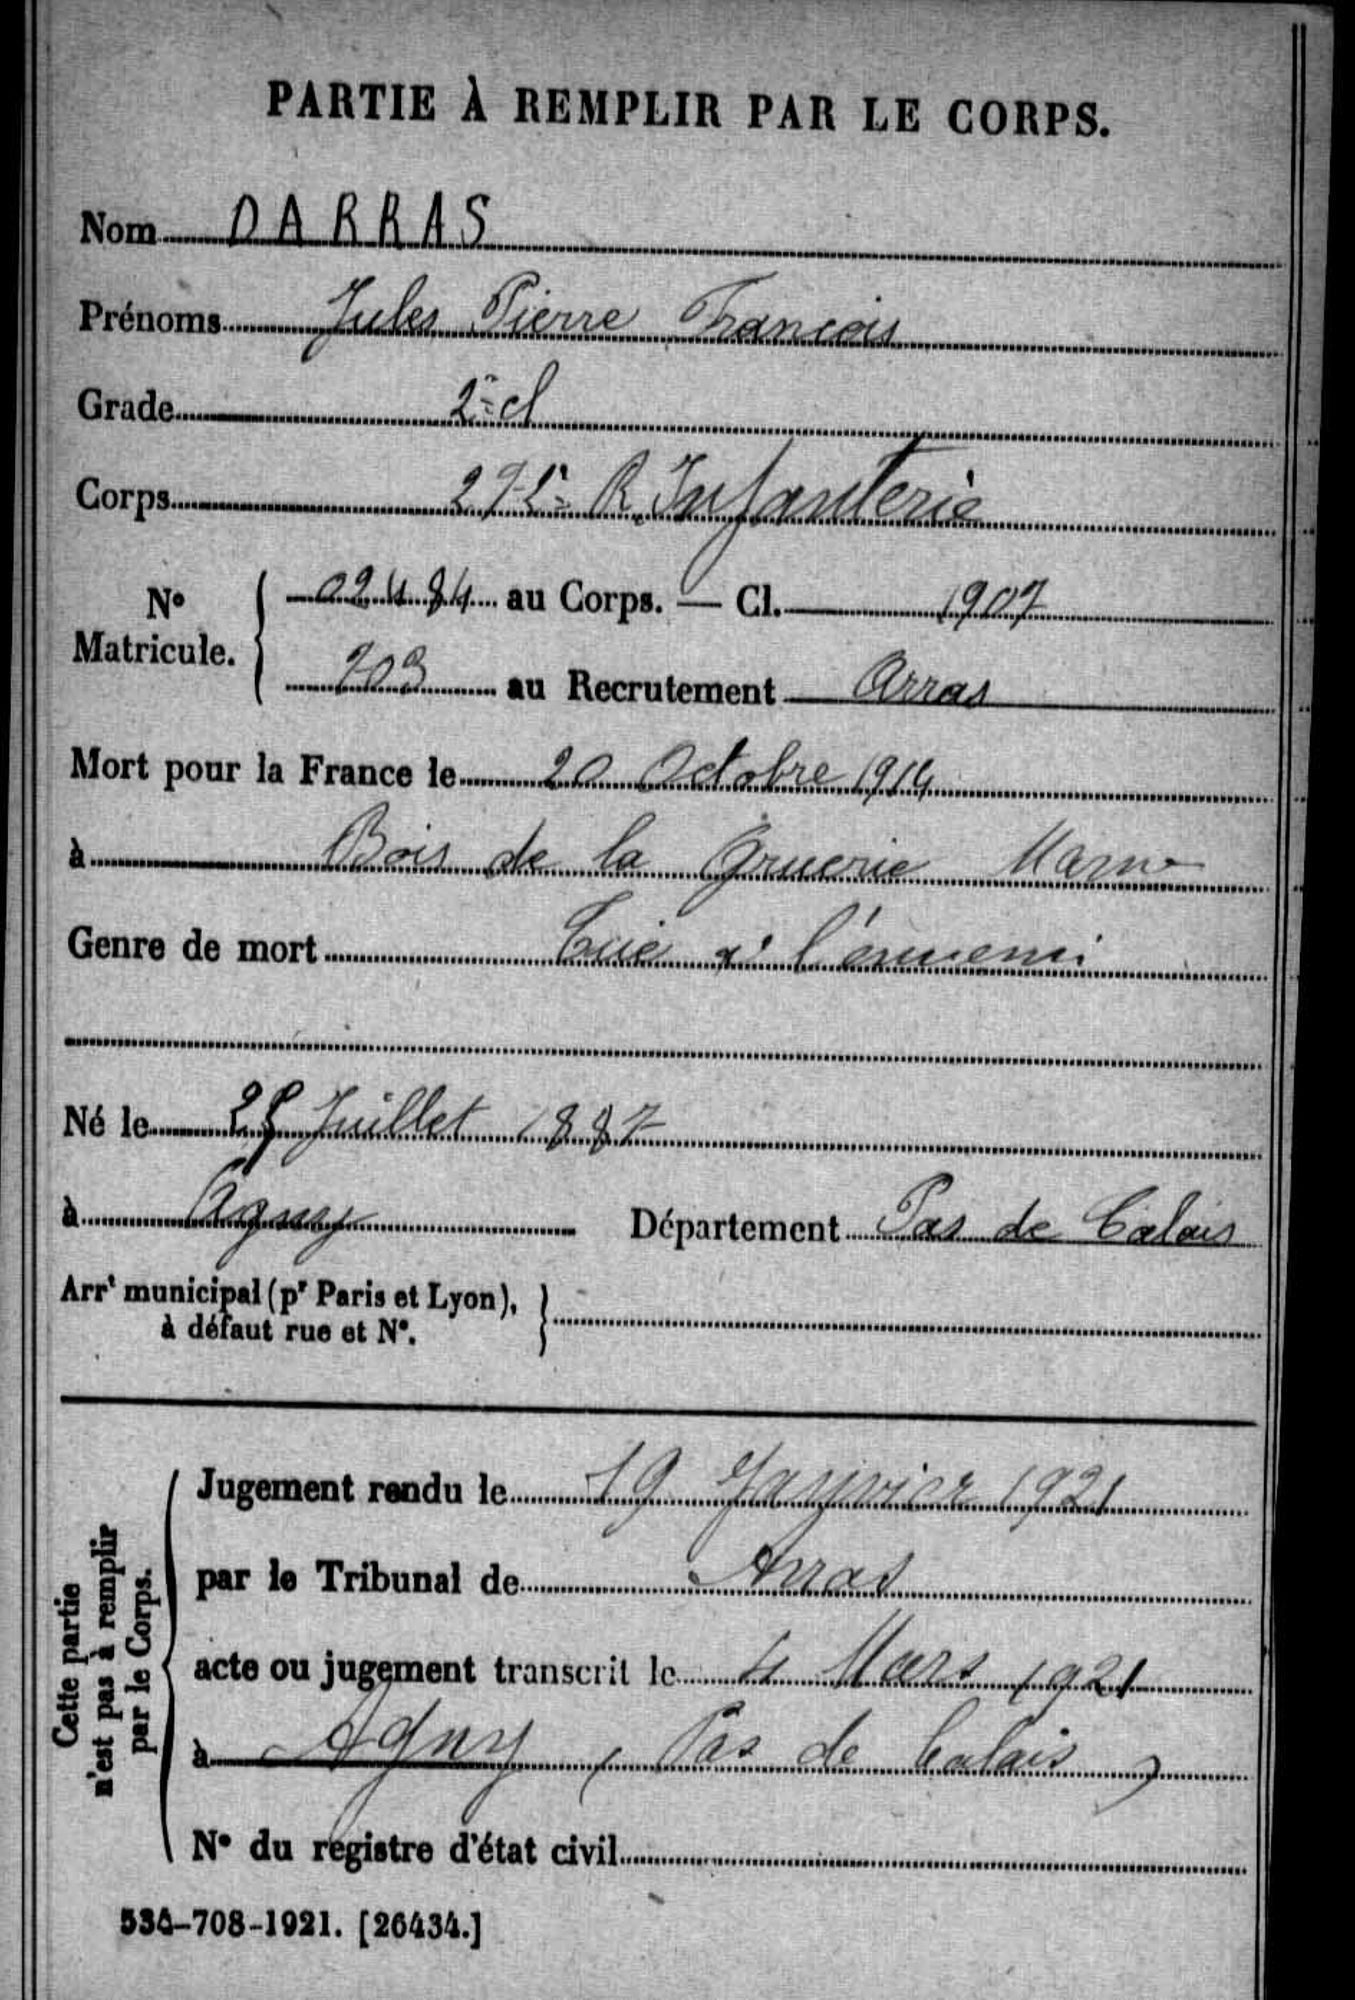 PARTIE À REMPLIR PAR LE CORPS.
Nom DARRAS
Prénoms Jules Pierre François
Grade 2e cl
Corps 272e R. Infanterie
No Matricule. 02484 au Corps. — Cl. 1907
703 au Recrutement Arras
Mort pour la France le 20 Octobre 1914
à Bois de la Gruerie Marne
Genre de mort Tué à l'ennemi
Né le 25 Juillet 1887
à Agny Département Pas de Calais
Arrt municipal (pr Paris et Lyon), à défaut rue et No.
Cette partie n'est pas à remplir par le Corps.
Jugement rendu le 19 Janvier 1921
par le Tribunal de Arras
acte ou jugement transcrit le 4 Mars 1921
à Agny (Pas de Calais)
No du registre d'état civil
534-708-1921. [26434.]